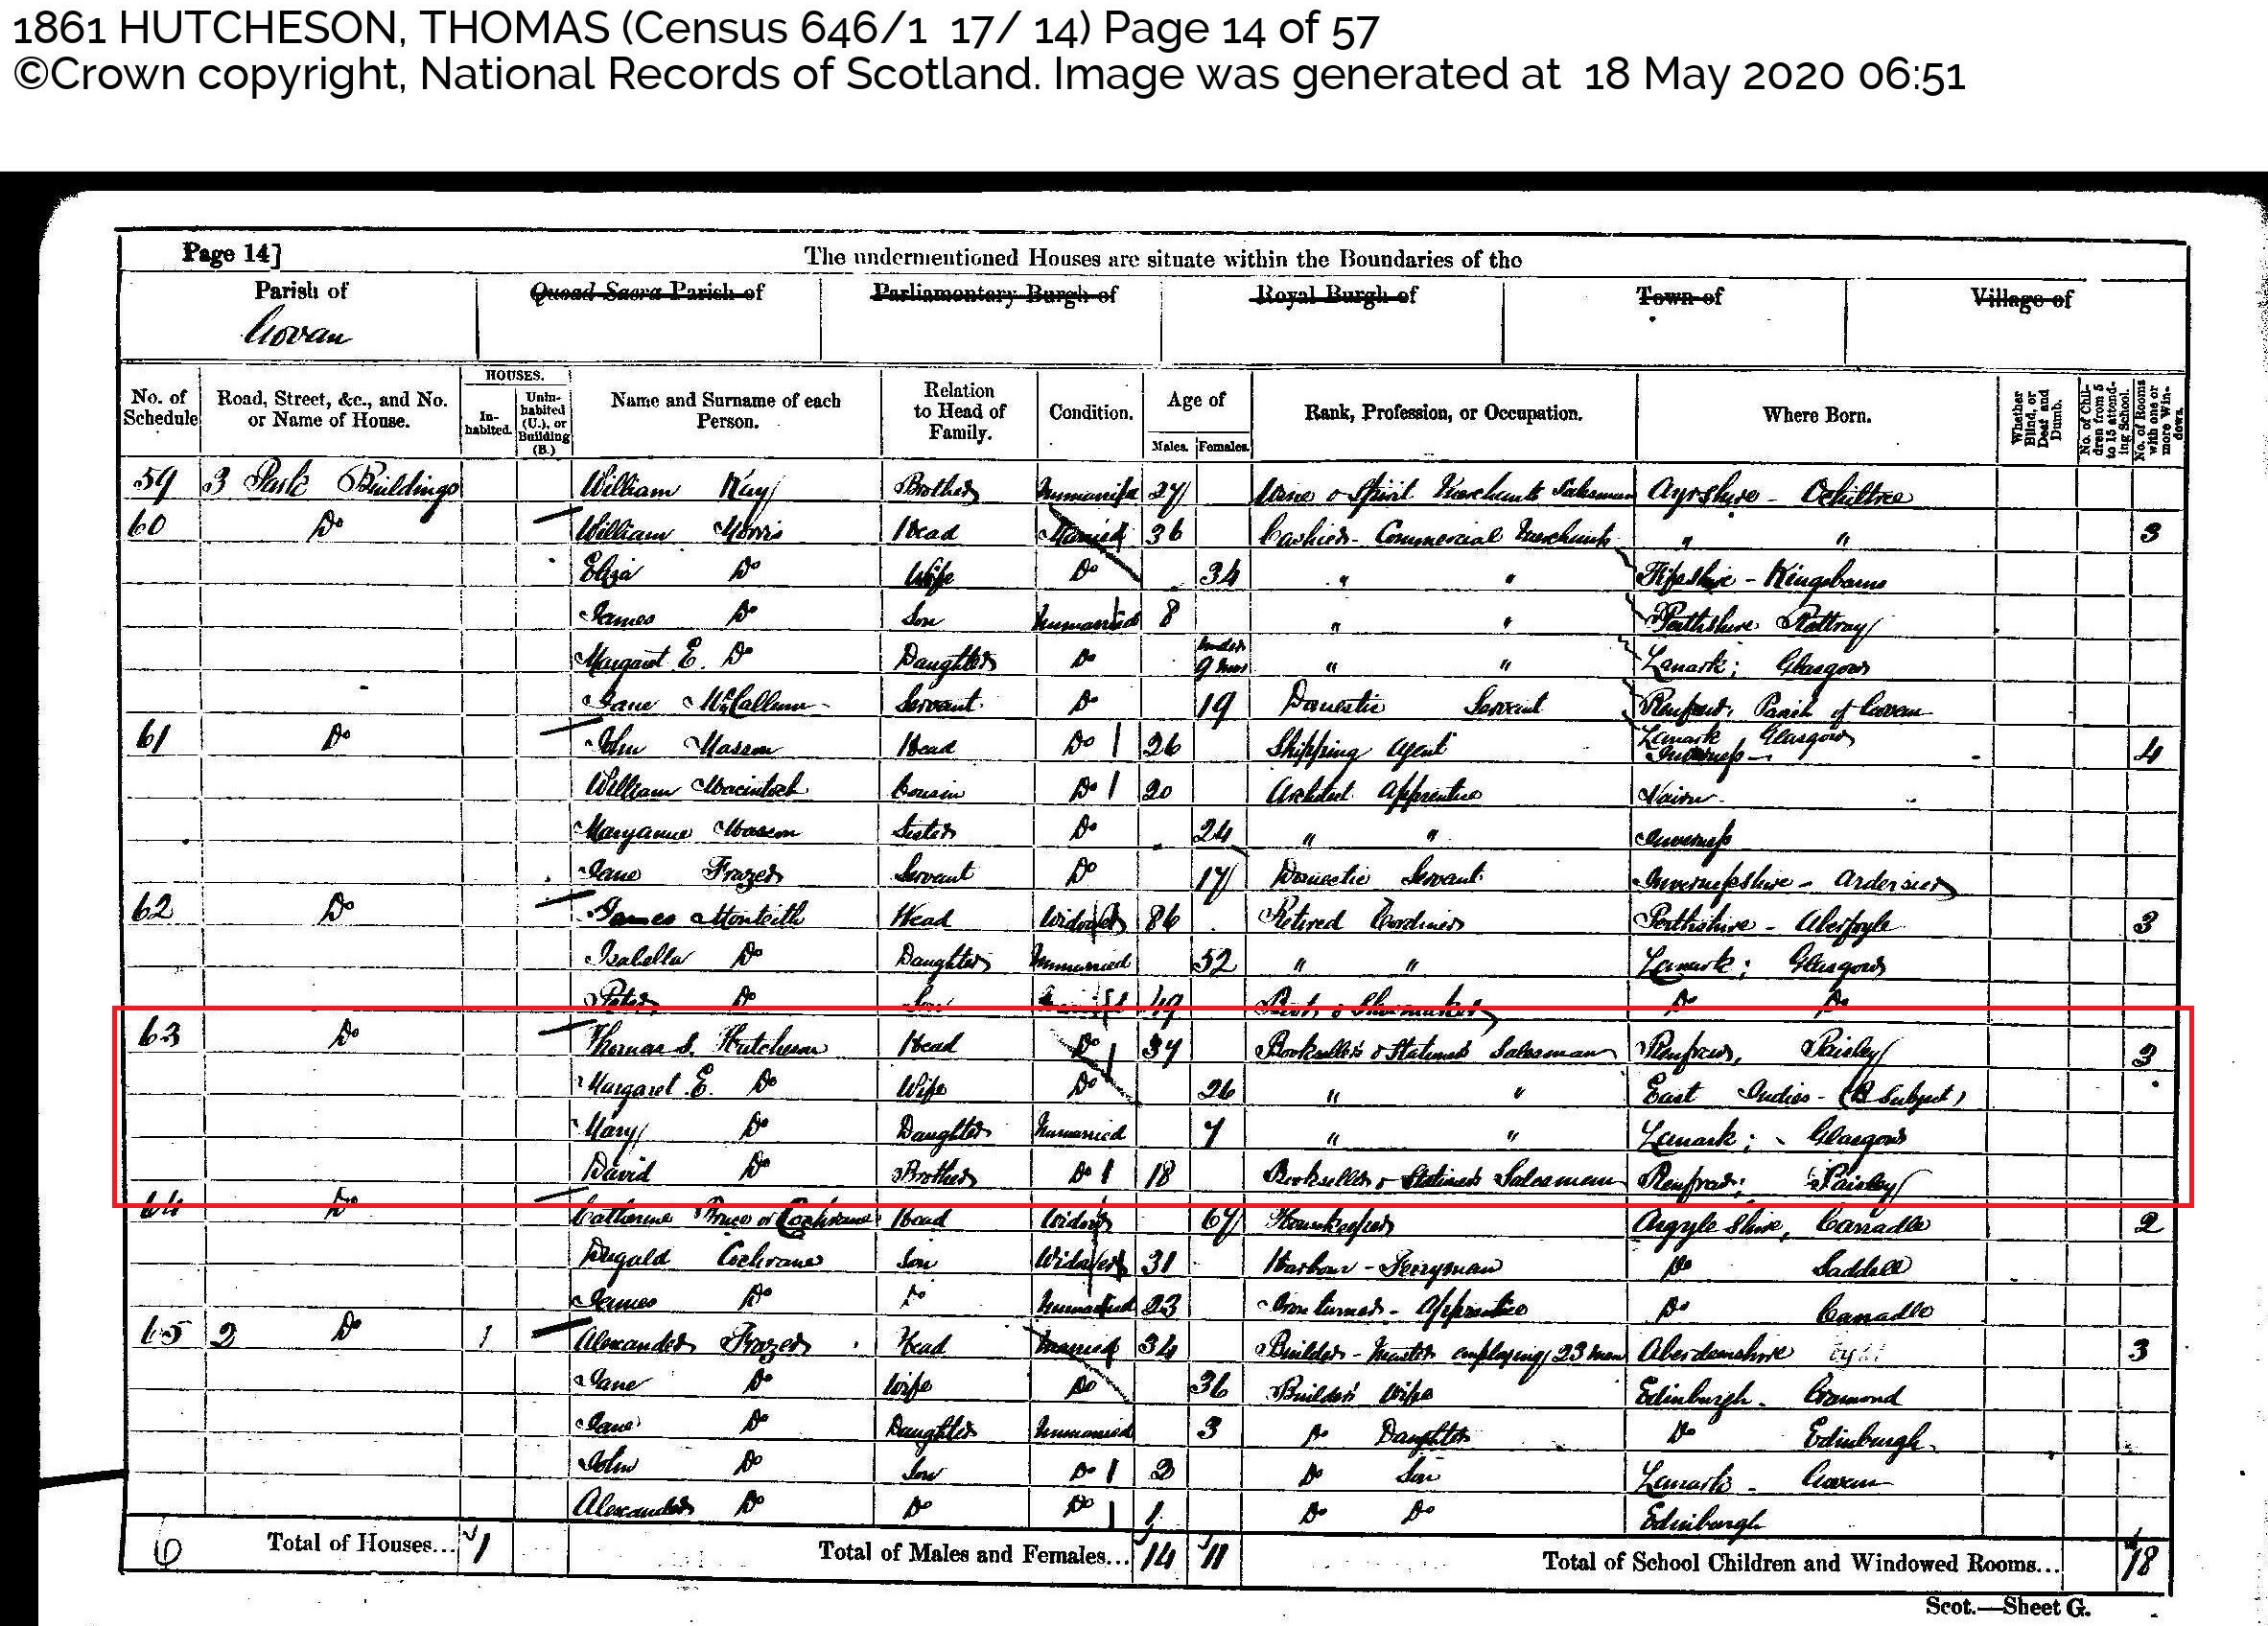 1861 HUTCHESON, THOMAS (Census 646/1 17/ 14) Page 14 of 57
©Crown copyright, National Records of Scotland. Image was generated at 18 May 2020 06:51
Page 14] The undermentioned Houses are situate within the Boundaries of the
Parish of Quoad Sacra Parish of Parliamentary Burgh of Royal Burgh of Town of Village of
Govan
No. of Schedule Road, Street, &c., and No. or Name of House. HOUSES. Inhabited. Uninhabited (U.), or Building (B.) Name and Surname of each Person. Relation to Head of Family. Condition. Age of Males. Females. Rank, Profession, or Occupation. Where Born. Whether Blind, or Deaf and Dumb. No. of Children from 5 to 15 attending School. No. of Rooms with one or more Windows.
59 3 Park Buildings William Kay Brother Unmarried 27 Wine & Spirit Merchants Salesman Ayrshire - Ochiltree
60 Do William Morris Head Married 36 Cashier - Commercial Merchants " " 3
Eliza Do Wife Do 34 " " Fifeshire - Kingsbarns
James Do Son Unmarried 8 " " Perthshire Rattray
Margaret E. Do Daughter Do under 9 mos " " Lanark; Glasgow
Jane McCallum Servant Do 19 Domestic Servant Renfrew, Parish of Govan
Lanark Glasgow
61 Do John Masson Head Do 26 Shipping Agent Inverness 4
William Macintosh Cousin Do 20 Architect Apprentice Nairn
Maryanne Masson Sister Do 24 " " Inverness
Jane Frazer Servant Do 17 Domestic Servant Invernessshire - Ardersier
62 Do James Monteith Head Widower 86 Retired Cordiner Perthshire - Aberfoyle 3
Isabella Do Daughter Unmarried 52 " " Lanark; Glasgow
Peter Do Son 49 Boot & Shoemaker Do Do
63 Do Thomas S. Hutcheson Head Do 37 Booksellers & Stationers Salesman Renfrew, Paisley 3
Margaret E. Do Wife Do 26 " " East Indies - (B Subject)
Mary Do Daughter Unmarried " " Lanark; Glasgow
David Do Brother Do 18 Booksellers & Stationers Salesman Renfrew; Paisley
64 Do Catherine Bruce or Cochrane Head Widow 67 Housekeeper Argyle Shire, Carradle 2
Dugald Cochrane Son Widower 31 Harbour - Ferryman Do Saddell
James Do Do Unmarried 23 Iron turner - Apprentice Do Carradle
65 2 Do 1 Alexander Frazer Head Married 34 Builder - Master employing 23 men Aberdeenshire 3
Jane Do Wife Do 36 Builder's Wife Edinburgh - Cramond
Jane Do Daughter Unmarried 3 Do Daughter Do Edinburgh
John Do Son Do 2 Do Son Lanark - Govan
Alexander Do Do Do 1 Do Do Edinburgh
6 Total of Houses... 1 Total of Males and Females... 14 11 Total of School Children and Windowed Rooms... 18
Scot.—Sheet G.